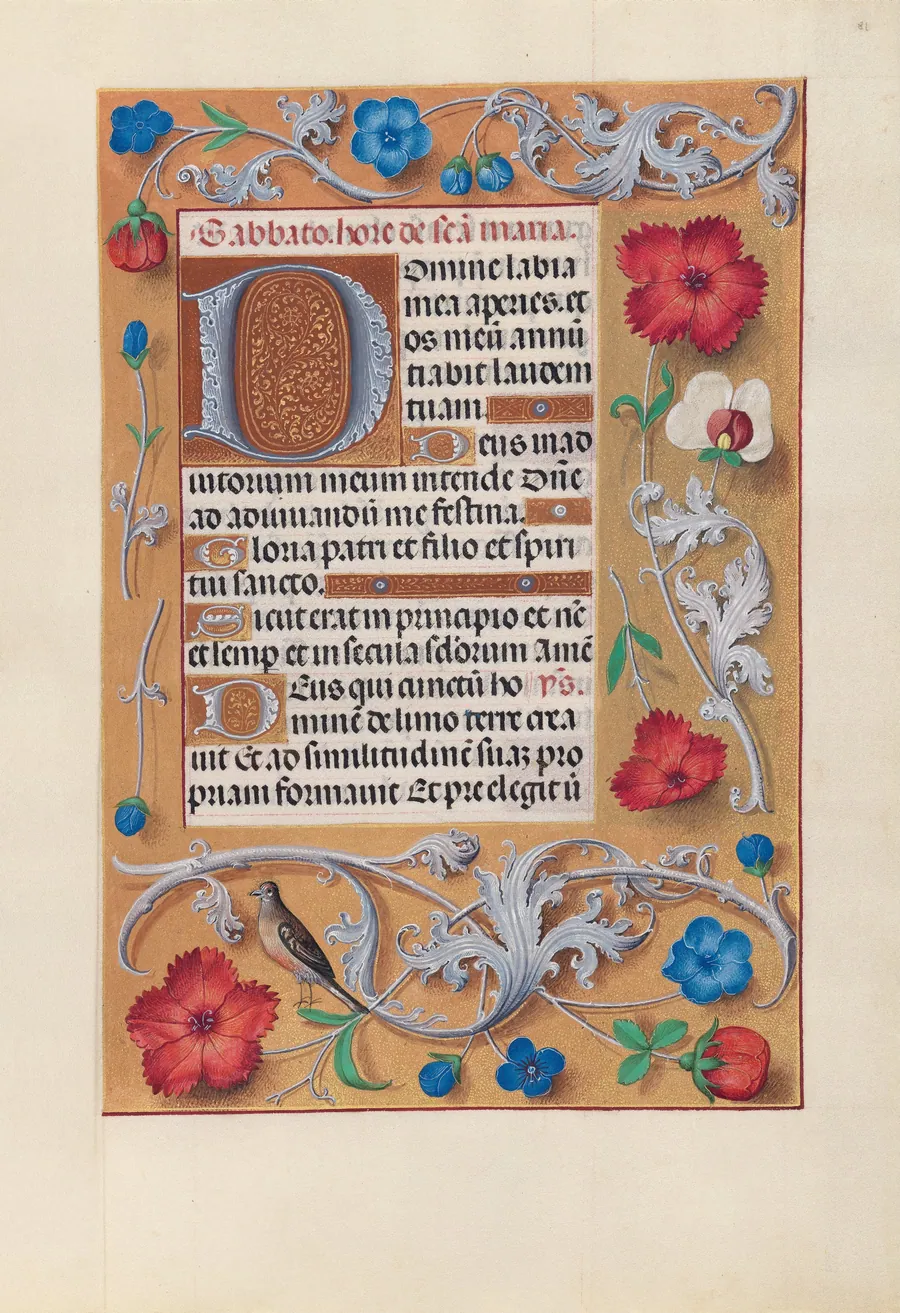 Sabbato. hore de scā maria.
Domine labia
mea aperies. et
os meū annū
tiabit laudem
tuam.
Deus in ad
iutorium meum intende Dn̄e
ad adiuuandū me festina.
Gloria patri et filio et spiri
tui sancto.
Sicut erat in principio et nūc
et semp et in secula sclorum Amē
Deus qui cunctū ho p̄s.
minē de limo terre crea
uit Et ad similitudinē suaꝫ pro
priam formauit Et pre elegit ū